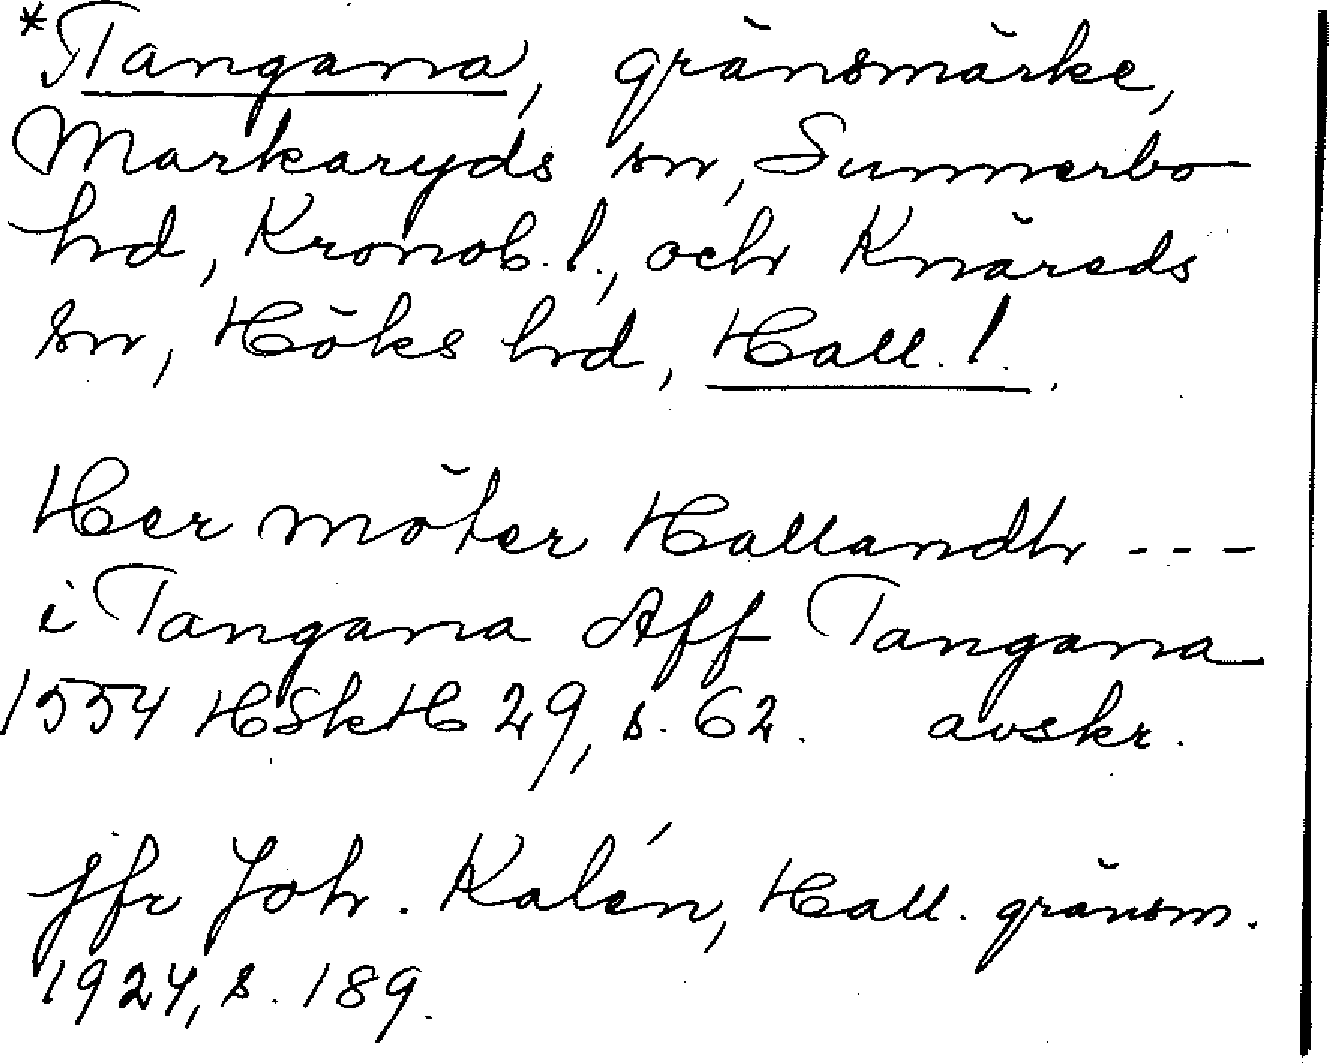 *Tangana, gränsmärke,
Markaryds sn, Sunnerbo
hd, Kronob. l., och Knäreds
sn, Höks hd, Hall. l.
Her möter Hallandh ---
i Tangana Aff Tangana
1554 HSkH 29, s. 62. avskr.
jfr Joh. Kalén, Hall. gränsm.
1924, s. 189.